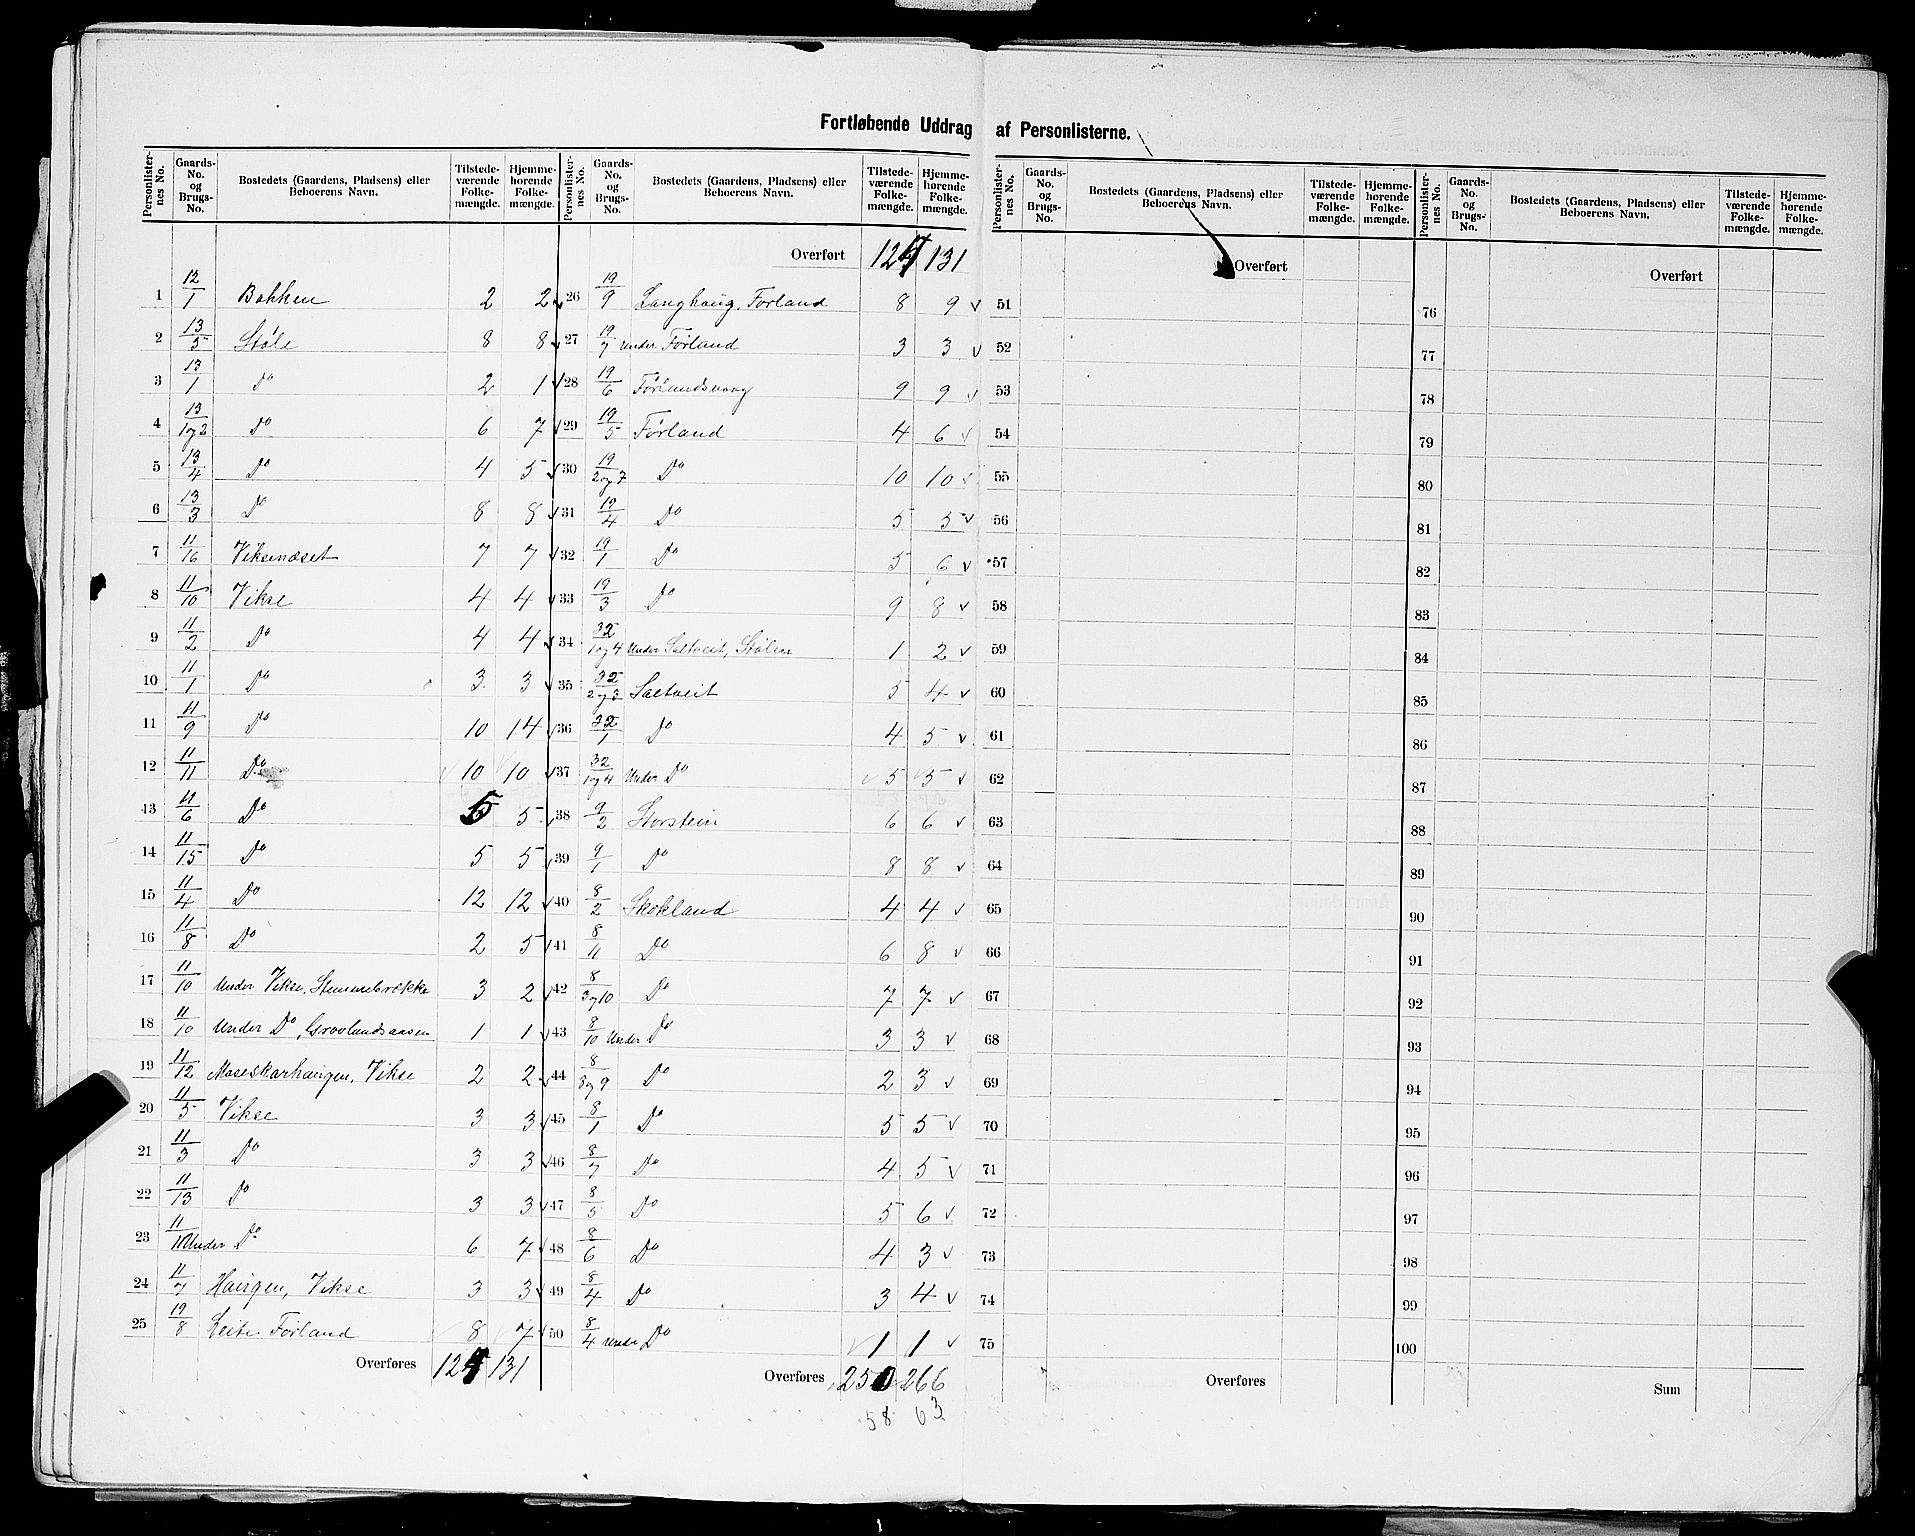 Fortløbende Uddrag af Personlisterne.
Personlisternes No. | Gaards-No. og Brugs-No. | Bostedets (Gaardens, Pladsens) eller Beboerens Navn. | Tilstedeværende Folkemængde. | Hjemmehørende Folkemængde.
1 12/1 Bakken 2 2
2 13/5 Støle 8 8
3 13/1 Do 2 1
4 13/1og2 Do 6 7
5 13/4 Do 4 5
6 13/3 Do 8 8
7 11/16 Viksenæset 7 7
8 11/10 Vikse 4 4
9 11/2 Do 4 4
10 11/1 Do 3 3
11 11/9 Do 10 14
12 11/11 Do 10 10
13 11/6 Do 5 5
14 11/15 Do 5 5
15 11/4 Do 12 12
16 11/8 Do 2 5
17 11/10 Under Vikse, Stemmebrække 3 2
18 11/10 Under Do, Grovlandsaasen 1 1
19 11/12 Maseskarhaugen, Vikse 2 2
20 11/5 Vikse 3 3
21 11/3 Do 3 3
22 11/13 Do 3 3
23 11/10 Under Do 6 7
24 11/7 Haugen, Vikse 3 3
25 19/8 Leite Førland 8 7
Overføres 124 131
Personlisternes No. | Gaards-No. og Brugs-No. | Bostedets (Gaardens, Pladsens) eller Beboerens Navn. | Tilstedeværende Folkemængde. | Hjemmehørende Folkemængde.
Overført 124 131
26 19/9 Langhaug, Førland 8 9
27 19/7 Under Førland 3 3
28 19/6 Førlandsvaag 9 9
29 19/5 Førland 4 6
30 19/2og7 Do 10 10
31 19/4 Do 5 5
32 19/1 Do 5 6
33 19/3 Do 9 8
34 32/1og4 Under Saltveit, Stølen 1 2
35 32/2og3 Saltveit 5 4
36 32/1 Do 4 5
37 32/1og4 Under Do 5 5
38 9/2 Storstein 6 6
39 9/1 Do 8 8
40 8/2 Skokland 4 4
41 8/11 Do 6 8
42 8/3og10 Do 7 7
43 8/10 Under Do 3 3
44 8/8og9 Do 2 3
45 8/1 Do 5 5
46 8/7 Do 4 5
47 8/5 Do 5 6
48 8/6 Do 4 3
49 8/4 Do 3 4
50 8/4 Under Do 1 1
Overføres 250 266
58 63
Personlisternes No. | Gaards-No. og Brugs-No. | Bostedets (Gaardens, Pladsens) eller Beboerens Navn. | Tilstedeværende Folkemængde. | Hjemmehørende Folkemængde.
Overført
51
52
53
54
55
56
57
58
59
60
61
62
63
64
65
66
67
68
69
70
71
72
73
74
75
Overføres
Personlisternes No. | Gaards-No. og Brugs-No. | Bostedets (Gaardens, Pladsens) eller Beboerens Navn. | Tilstedeværende Folkemængde. | Hjemmehørende Folkemængde.
Overført
76
77
78
79
80
81
82
83
84
85
86
87
88
89
90
91
92
93
94
95
96
97
98
99
100
Sum